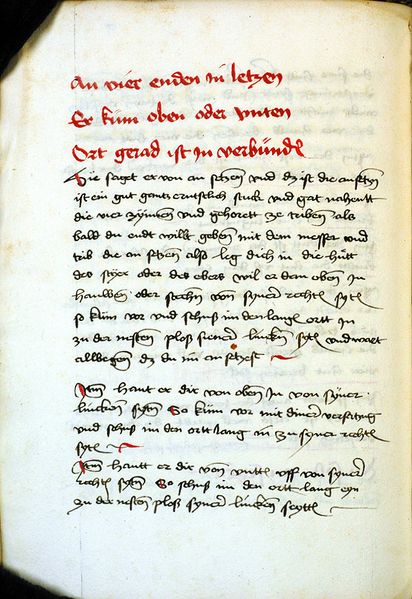 An vier enden in letzen
Er küm oben oder vnten
Ort gerad ist in verkünden
Hie saget er von an seczen vnd dz ist die an seczen
ist ein gut gancz ernstlich stuck vnd gat nahent
die vier zynnen vnd gehorett ze triben als
bald du endt wilt geben mit dem messer vnd
trib die an seczen also leg dich in die hütt
des styer oder des ebers wil er dann oben in
hawen oder stechen von syner rechten sytt
so küm vor vnd schuß im den langen ortt in
zu der nechsten plöß siener lincken sytt vnd wart
allwegen dz du im an seczest
Item hawt er dir von oben in von syner
lincken sytten So küm vor mit diner versatzung
vnd schuß im den ortt lang in zu syner rechten
sytt
Item hawtt er dir von vntten vff von syner
rechten sytten So schuß im den ortt lang eyn
zu der nechsten plöß syner lincken seytten